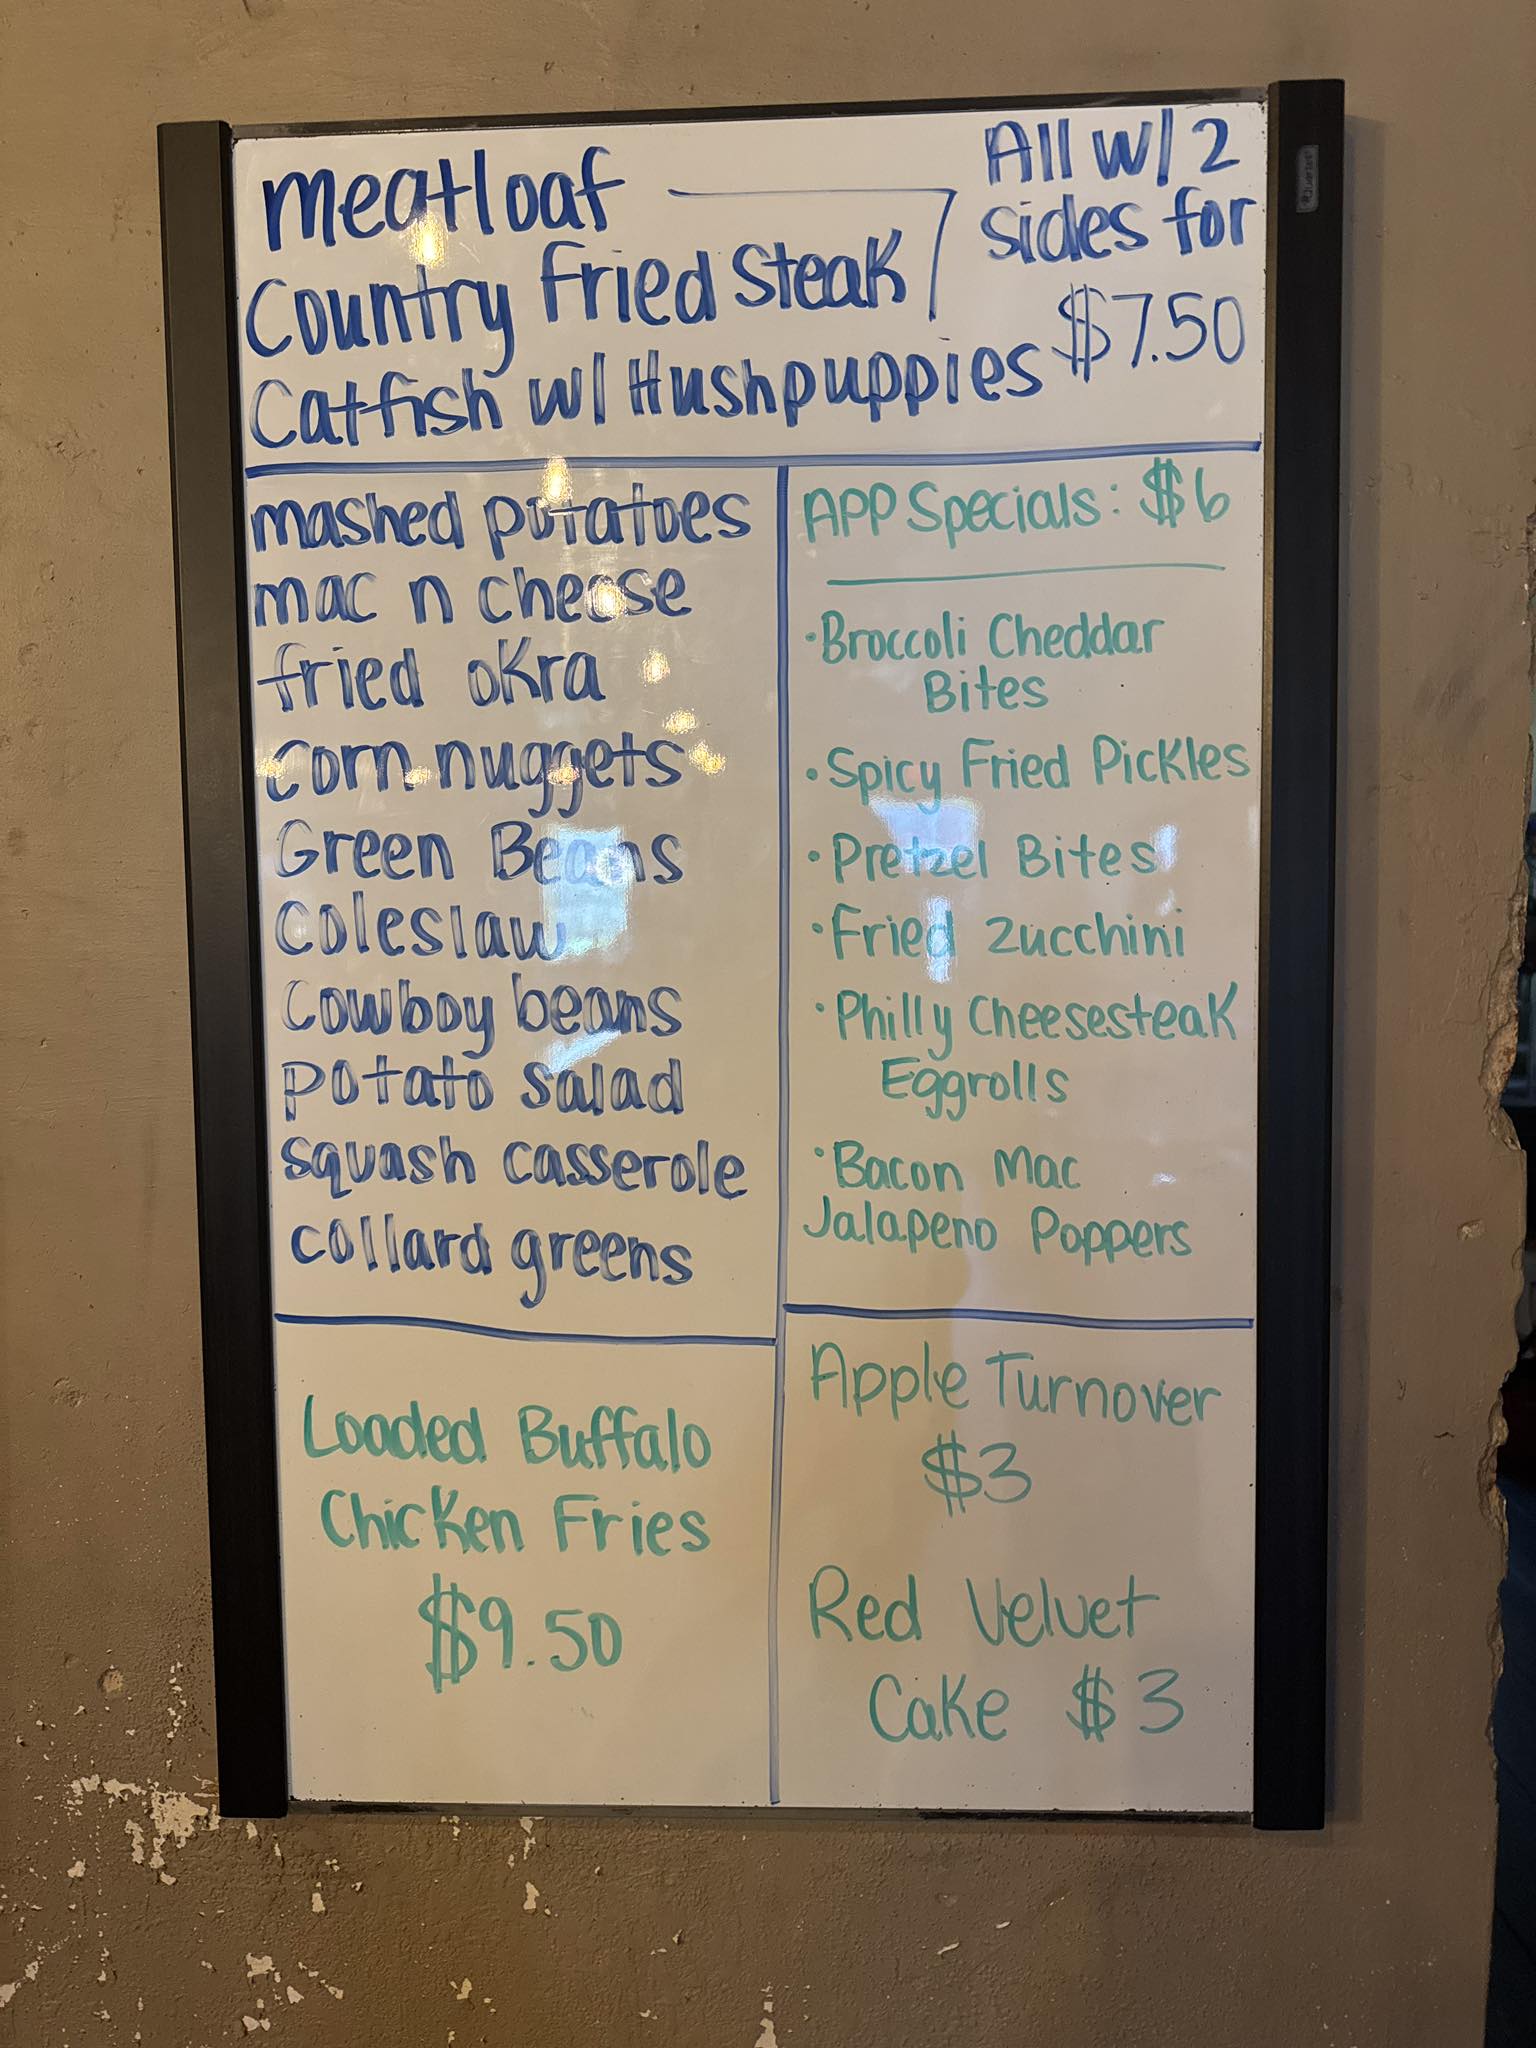 meatloaf
Country Fried Steak
Catfish w/ Hushpuppies
All w/ 2
sides for
$7.50
mashed potatoes
mac n cheese
fried okra
corn nuggets
Green Beans
Coleslaw
Cowboy beans
potato salad
squash casserole
collard greens
APP Specials: $6
• Broccoli Cheddar
Bites
• Spicy Fried Pickles
• Pretzel Bites
• Fried Zucchini
• Philly Cheesesteak
Eggrolls
• Bacon Mac
Jalapeno Poppers
Loaded Buffalo
Chicken Fries
$9.50
Apple Turnover
$3
Red Velvet
Cake $3
Quartet